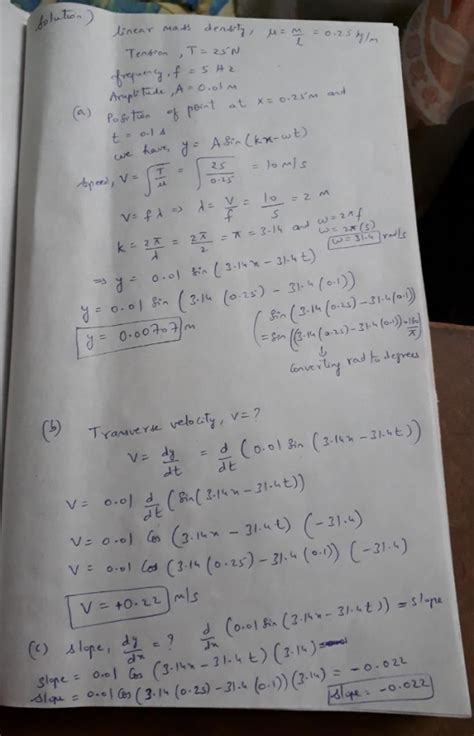 Solution)
linear mass density, μ = m/l = 0.25 kg/m
Tension, T = 25N
frequency, f = 5 Hz
Amplitude, A = 0.01 m
(a) Position of point at x = 0.25m and
t = 0.1 s
we have y = A Sin (kx - ωt)
Speed, V = √(T/μ) = √(25/0.25) = 10 m/s
V = fλ ⇒ λ = V/f = 10/5 = 2 m
k = 2π/λ = 2π/2 = π = 3.14 and ω = 2πf
ω = 2π(5)
ω = 31.4 rad/s
⇒ y = 0.01 sin (3.14x - 31.4t)
y = 0.01 Sin (3.14 (0.25) - 31.4 (0.1))
y = 0.00707 m
(Sin (3.14 (0.25) - 31.4 (0.1))
= Sin ((3.14 (0.25) - 31.4 (0.1)) × 180/π)
↓
Converting rad to degrees
(b) Transverse velocity, V = ?
V = dy/dt = d/dt (0.01 Sin (3.14x - 31.4t))
V = 0.01 d/dt (Sin (3.14x - 31.4t))
V = 0.01 Cos (3.14x - 31.4t) (-31.4)
V = 0.01 Cos (3.14 (0.25) - 31.4 (0.1)) (-31.4)
V = +0.22 m/s
(c) slope, dy/dx = ? d/dx (0.01 Sin (3.14x - 31.4t) = slope
slope = 0.01 Cos (3.14x - 31.4t) (3.14)
slope = 0.01 Cos (3.14 (0.25) - 31.4 (0.1)) (3.14) = -0.022
slope = -0.022